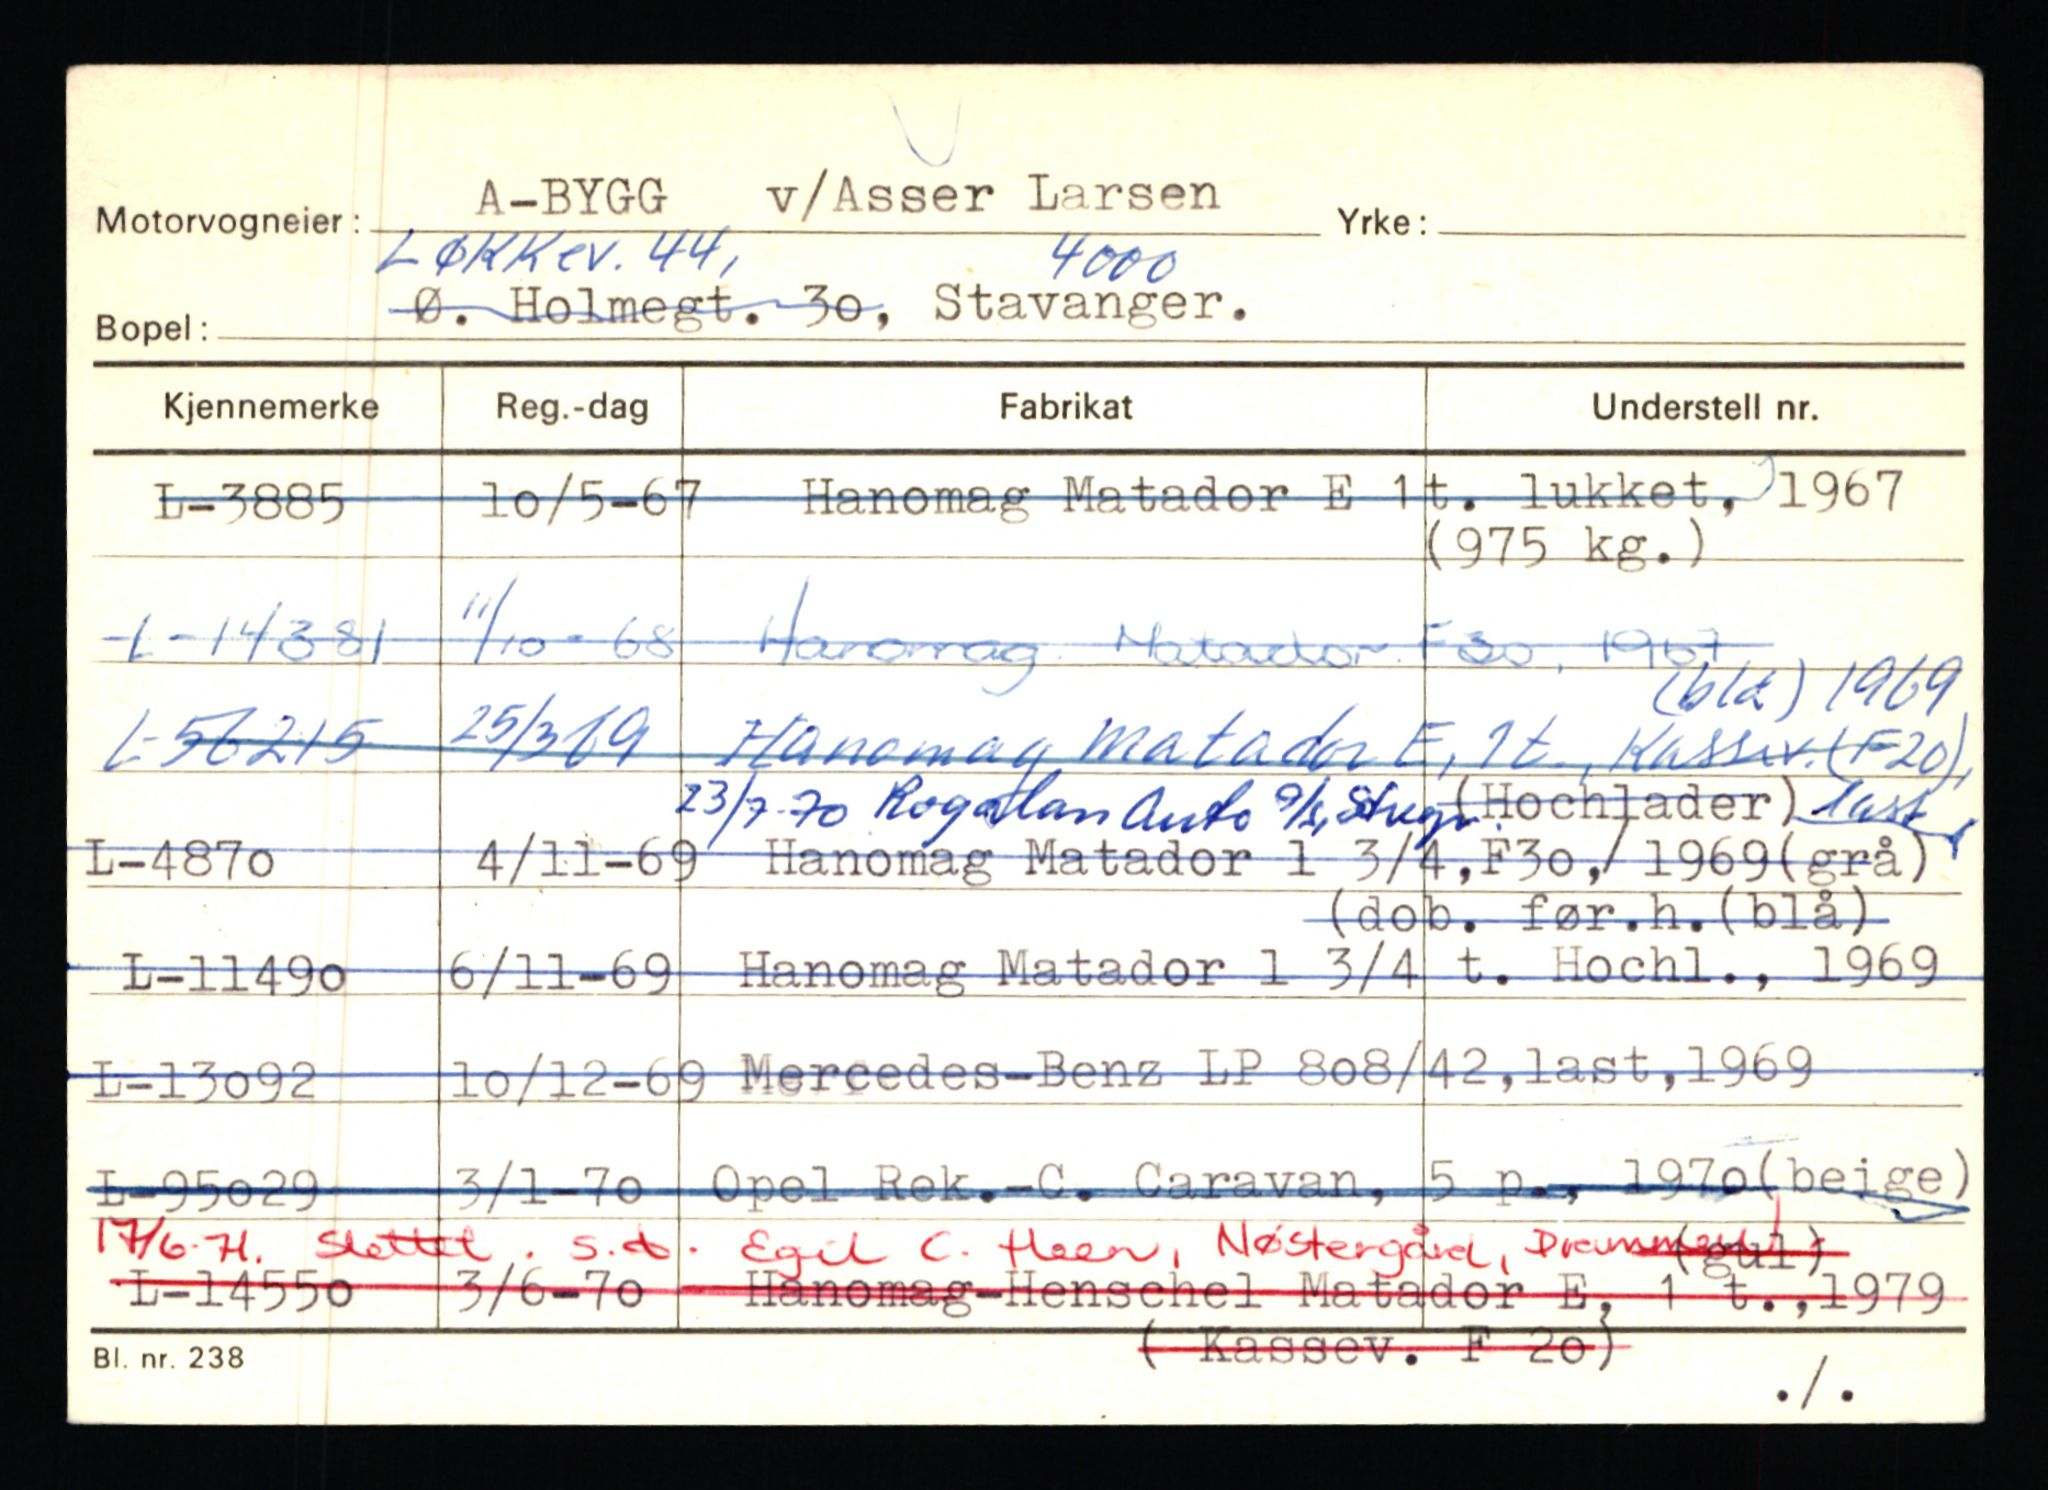 Motorvogneier: A-BYGG v/Asser Larsen Yrke:
Løkkev. 44, 4000
Bopel: Ø. Holmegt. 3o, Stavanger.
Kjennemerke Reg.-dag Fabrikat Understell nr.
L-3885 lo/5-67 Hanomag Matador E 1t. lukket, 1967
(975 kg.)
L-14381 11/10-68 Hanomag Matador F30, 1967
(blå) 1969
L-56215 25/3 69 Hanomag Matador E, 1t., Kassev. (F20),
23/7-70 Rogalan Auto (Hochlader) last
L-487o 4/11-69 Hanomag Matador l 3/4,F3o,/ 1969(grå)
(dob. før.h.(blå)
L-1149o 6/11-69 Hanomag Matador l 3/4 t. Hochl., 1969
L-13o92 lo/12-69 Mercedes-Benz LP 8o8/42,last,1969
L-95o29 3/1-7o Opel Rek.-C. Caravan, 5 p., 197o(beige)
17/6-71. Slettet. s.d. Egil C. Heen, Nøstergård, Drammen (gul)
L-1455o 3/6-7o Hanomag-Henschel Matador E, 1 t.,1979
( Kassev. F 2o)
Bl. nr. 238
./.